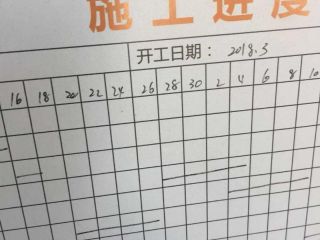 施工进度
开工日期: 2018.3
16 18 20 22 24 26 28 30 2 4 6 8 10